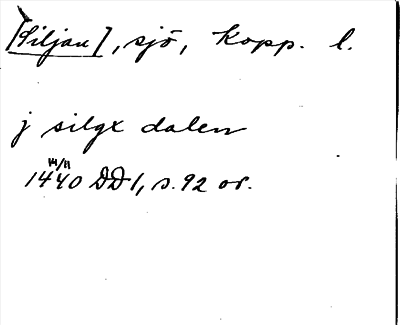 [Siljan], sjö, Kopp. l.
j silgx dalen
14/11
1440 DD 1, s. 92 or.